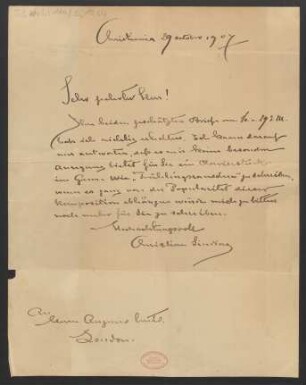 Christiania 29 october 1907
Sehr geehrter Herr!
Ihre beiden geschätzten Briefe
habe ich richtig erhalten. Ich kann darauf
nur antworten, dass es mir keine besondere
Anregung bietet für Sie ein Clavierstück
im Genre wie „Frühlingsrauschen" zu schreiben,
wenn es ganz von der Popularität dieser
Komposition abhängen würde mich zu bitten
noch mehr für Sie zu schreiben.
Hochachtungsvoll
Christian Sinding
An
Herrn Augener Limtd.
London.